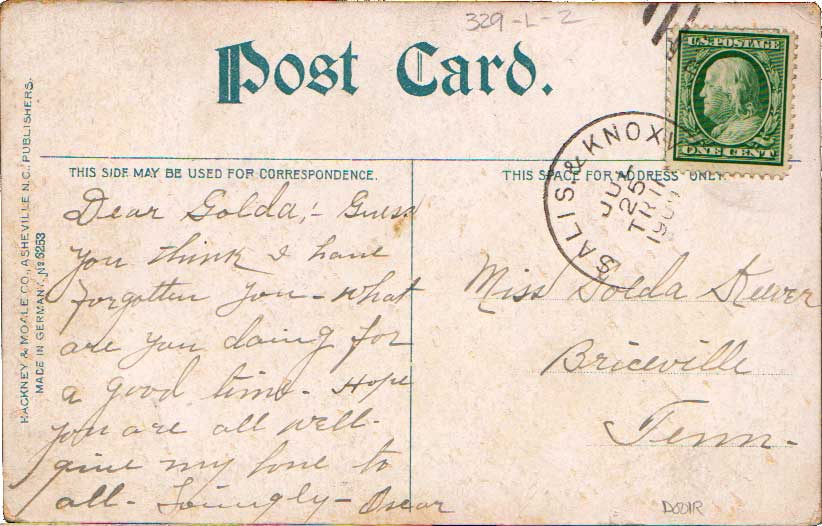 329-L-2
Post Card.
U.S. POSTAGE
ONE CENT
SALIS. & KNOXV
JUL
25
TR 11
1909
THIS SIDE MAY BE USED FOR CORRESPONDENCE.
THIS SPACE FOR ADDRESS ONLY.
HACKNEY & MOALE CO., ASHEVILLE N.C. PUBLISHERS.
MADE IN GERMANY. No 6253
Dear Golda,- Guess
you think I have
forgotten you - what
are you doing for
a good time - Hope
you are all well -
give my love to
all - Lovingly - Oscar
Miss Golda
Briceville
Tenn -